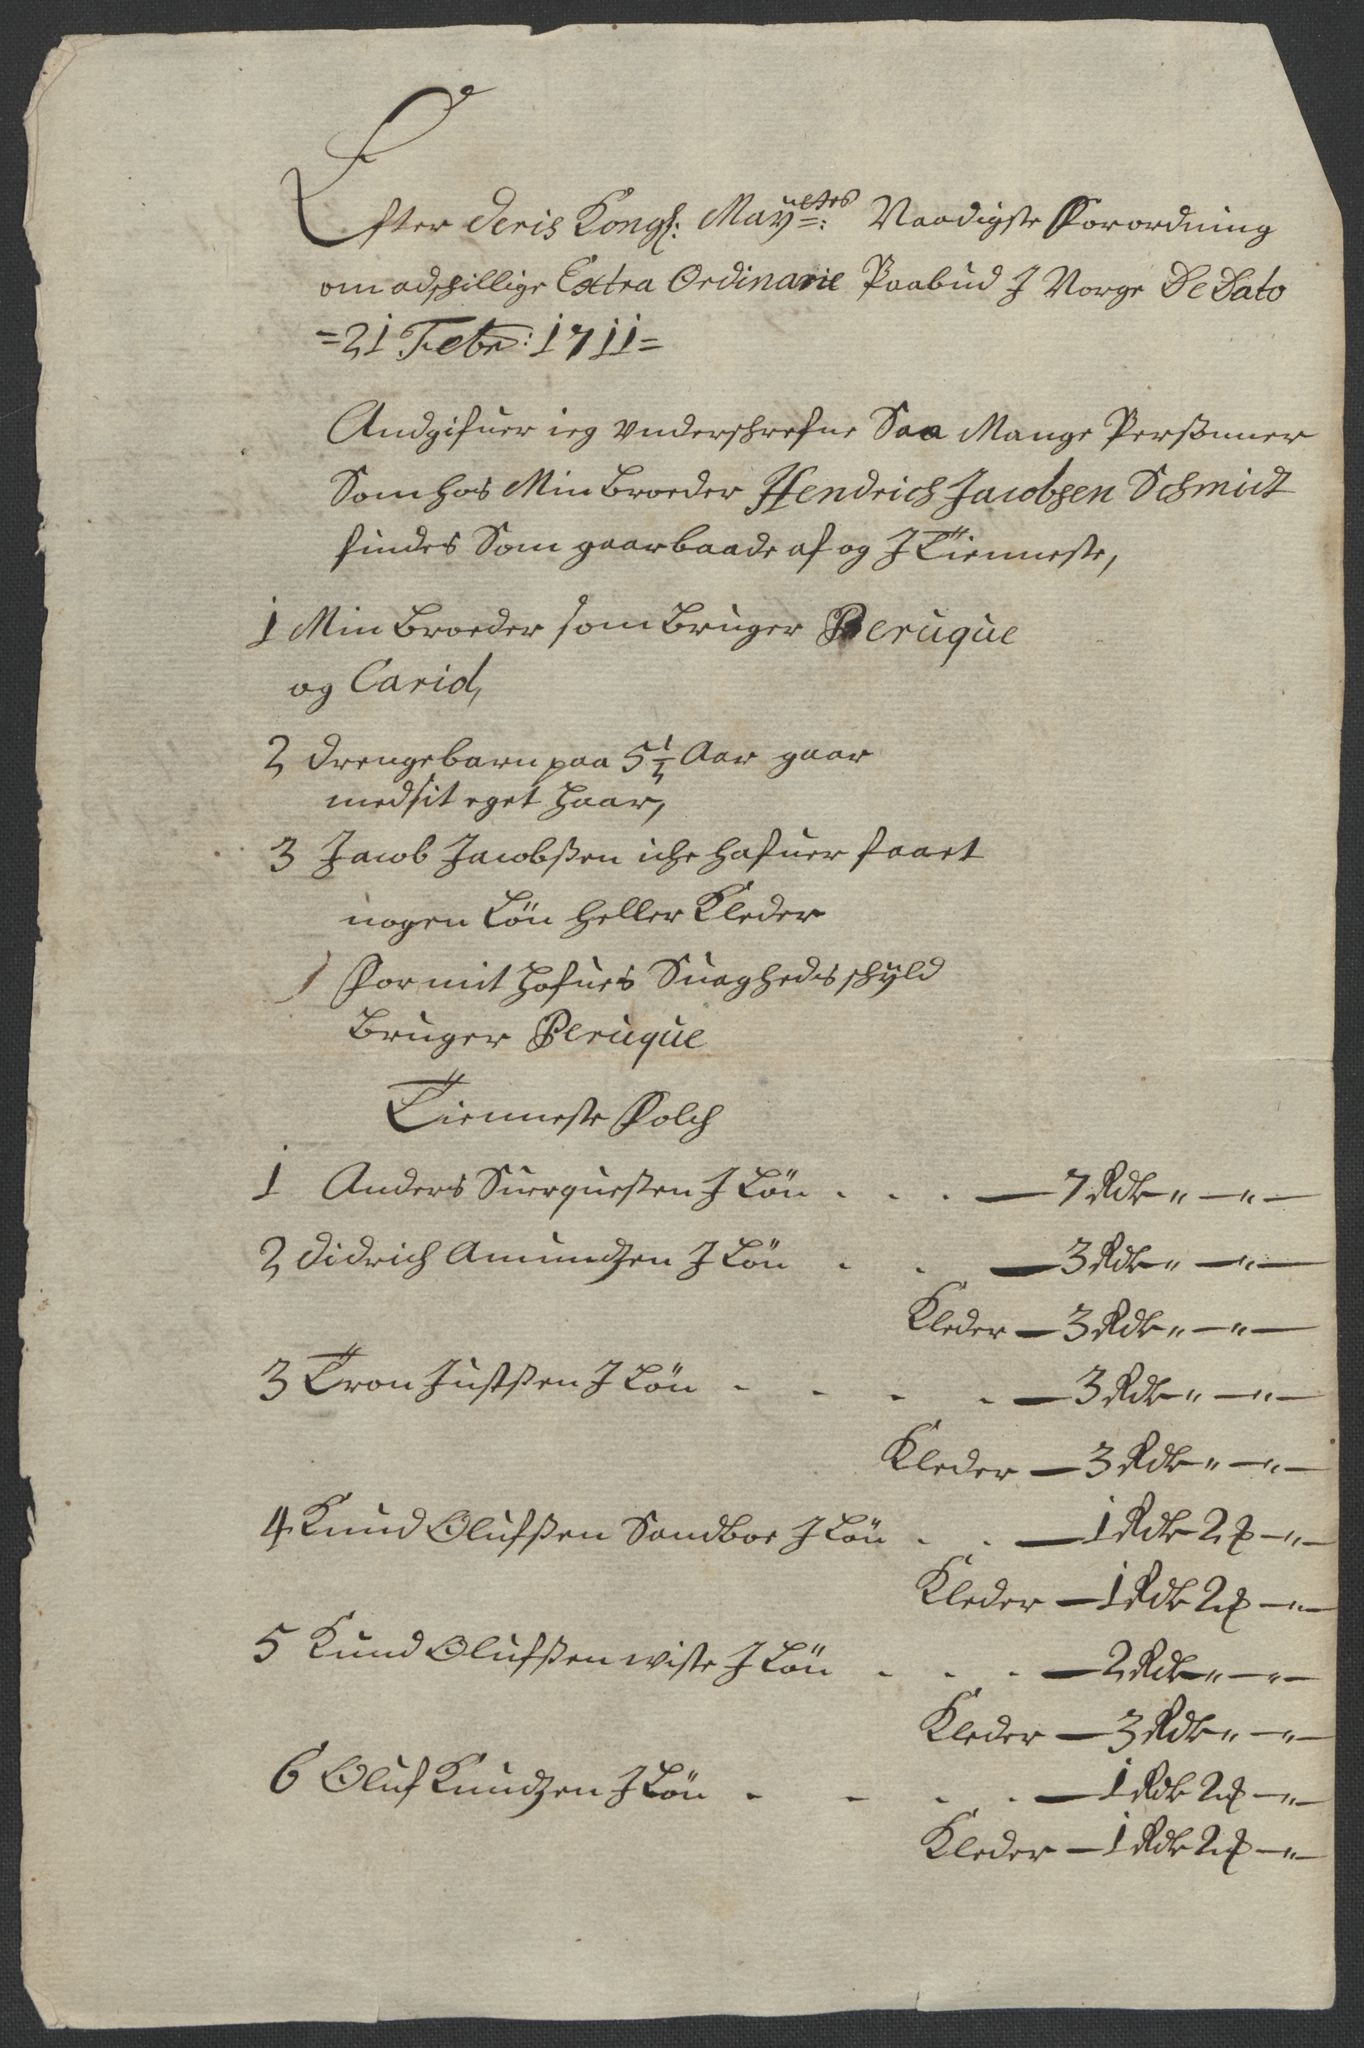 Efter Deris Kongl: Mayᵉˢᵗᵉˢ: Naadigste Forordning
om adschillige Extra Ordinarie Paabud J Norge De Dato
=21 Febr: 1711=
Andgifuer ieg underschrefne Saa Mange Persohner
Som hos Min Broeder Hendrich Jacobsen Schmidt
findes Som gaar baade af og J Tienneste,
1 Min Broeder som bruger Peruque
og Cariol,
2 drengebarn paa 5½ Aar gaar
med sit eget haar,
3 Jacob Jacobsen iche hafuer faaet
nogen Løn heller Kleder
) For mit hofuets Suaghedis schyld
Bruger Peruque
Tienneste Folch
1 Anders Suerquesen J Løn . . . — 7 Rdr " — " —
2 Didrich Amundsen J Løn . . — 3 Rdr " — " —
Kleder — 3 Rdr " — " —
3 Tron Justsen J Løn . . . . — 3 Rdr " — " —
Kleder — 3 Rdr " — " —
4 Knud Olufsen Sandboe J Løn . . — 1 Rdr 2 ₰ — " —
Kleder — 1 Rdr 2 ₰ — " —
5 Knud Olufsen wiste J Løn . . . — 2 Rdr " — " —
Kleder — 3 Rdr " — " —
6 Oluf Knudsen J Løn . . . . — 1 Rdr 2 ₰ — " —
Kleder — 1 Rdr 2 ₰ — " —